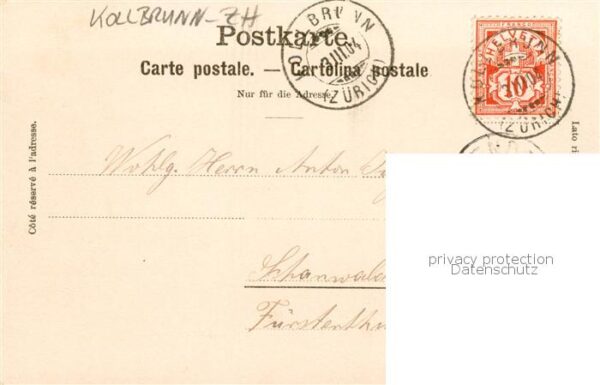 KOLLBRUNN-ZH
Postkarte.
Carte postale. — Cartolina postale
Nur für die Adresse.
KOLLBRUNN
(ZÜRICH)
HELVETIA
10
(ZÜRICH)
Côté réservé à l'adresse.
Lato ri
Wohlg. Herrn Anton
Schanwald
Fürstenthu
privacy protection
Datenschutz